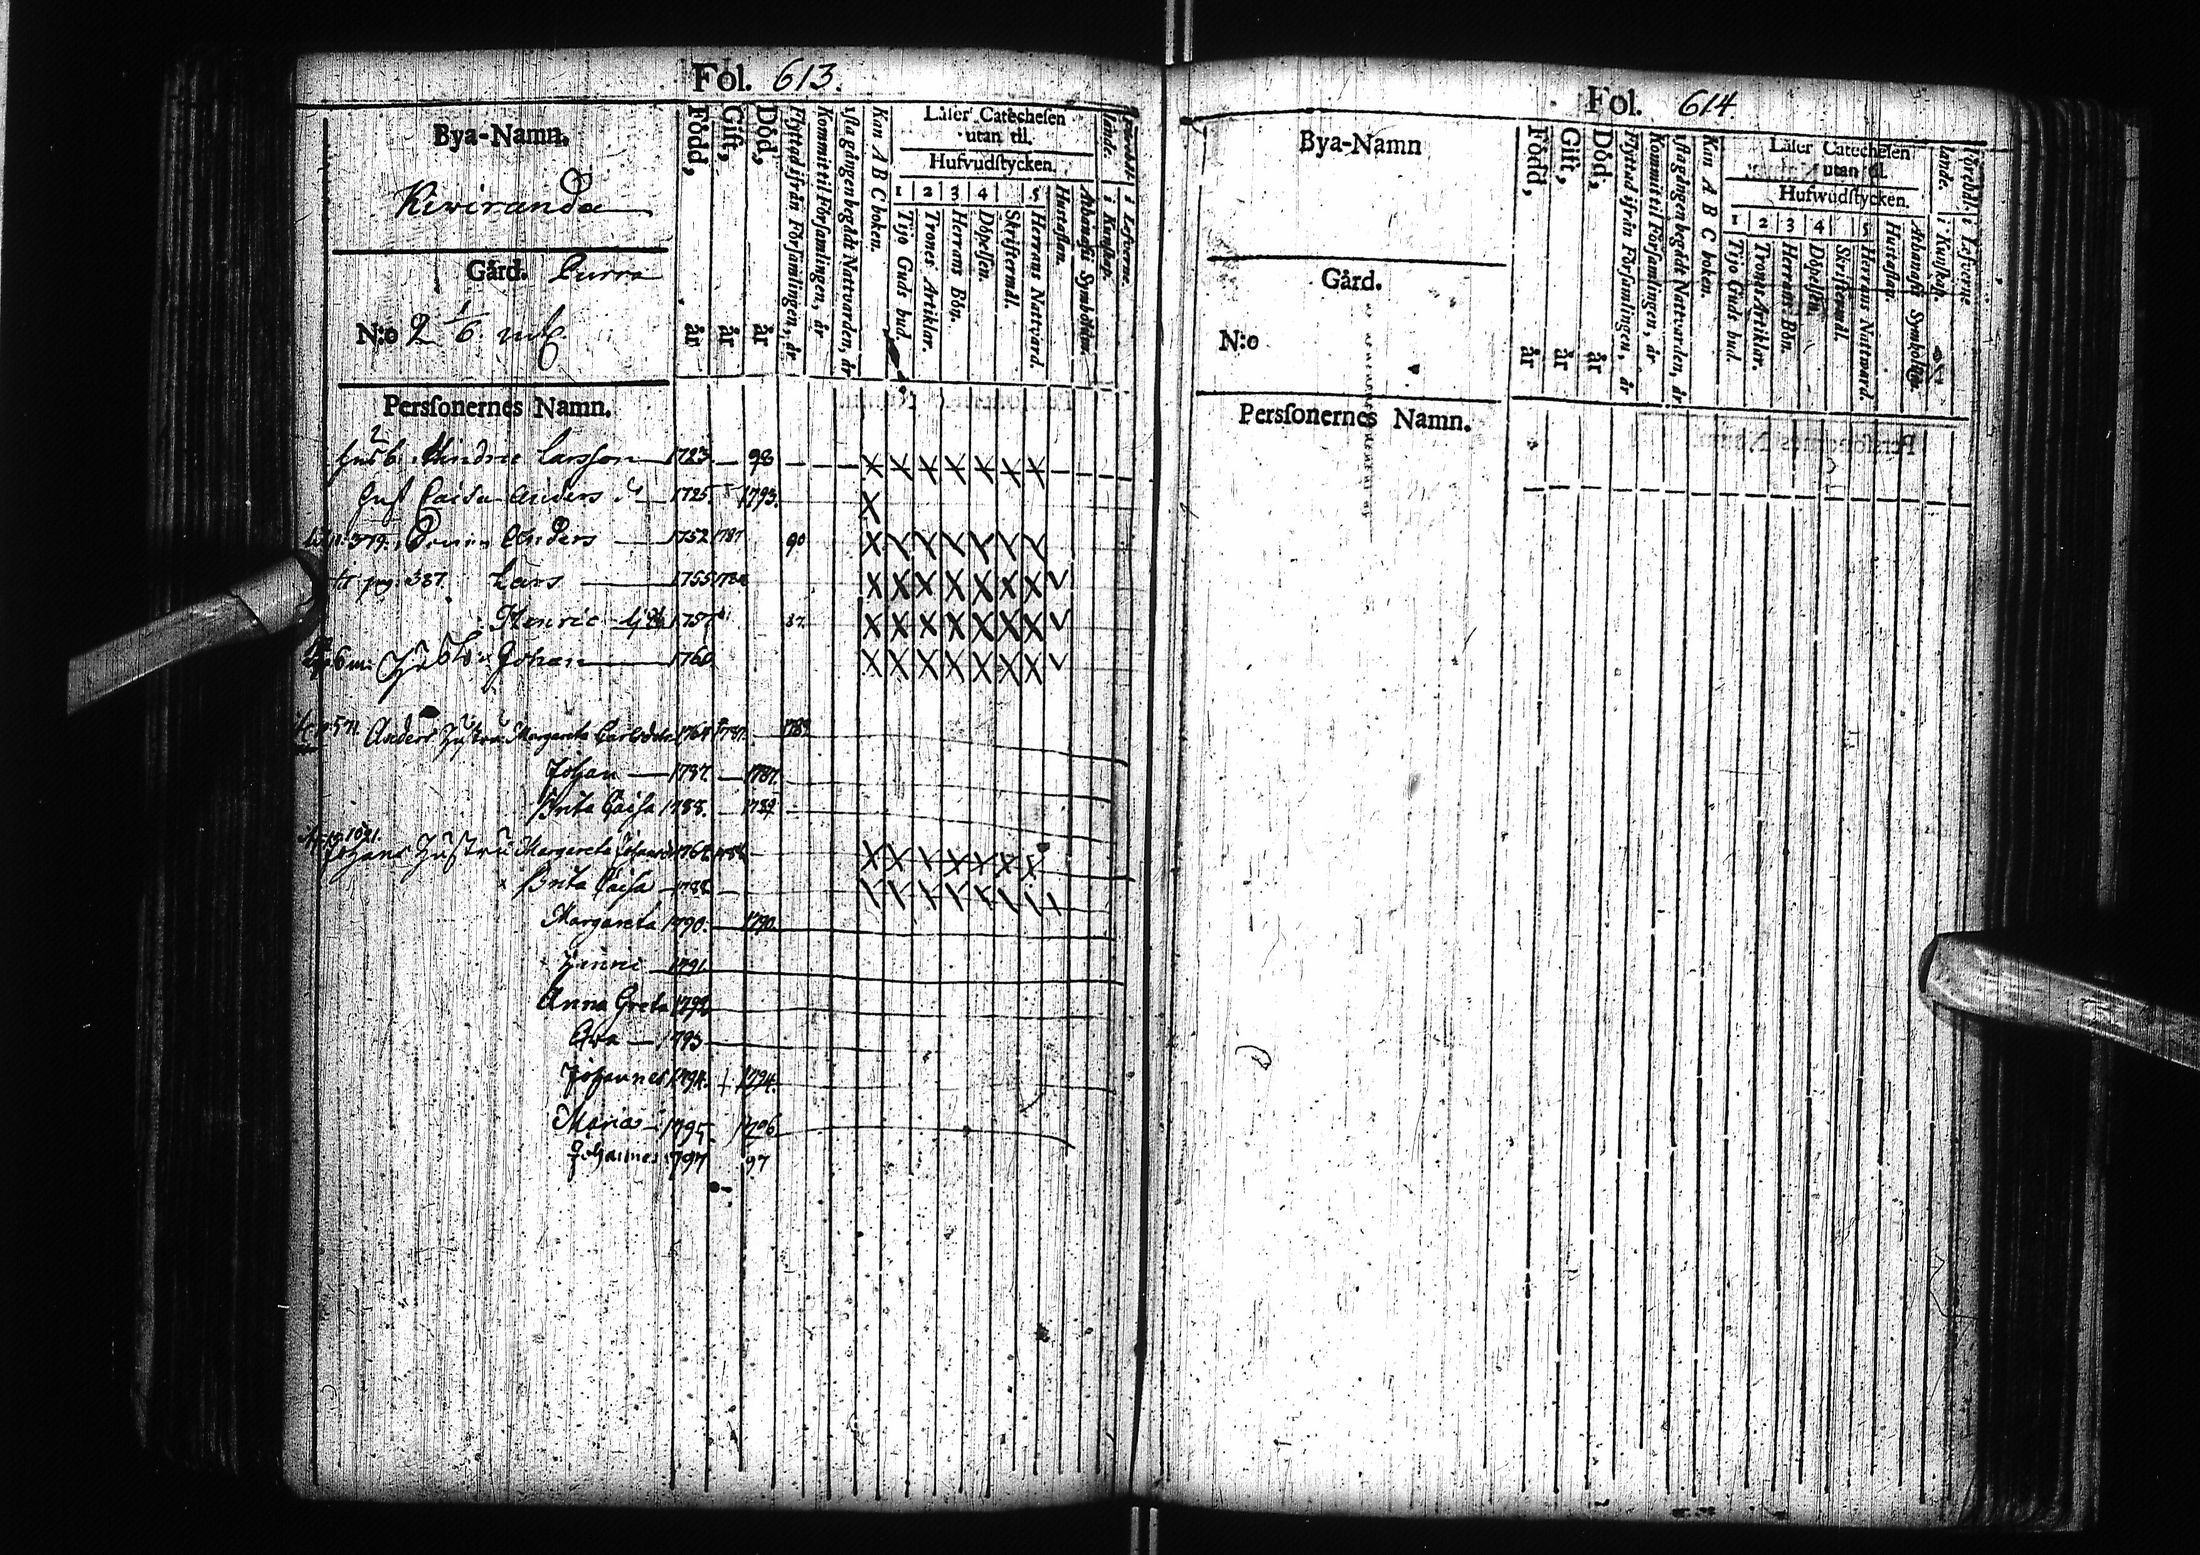 Fol. 613.
Bya-Namn.
Kiviranda
Gård. Lurra
N:o 2 1/6. mtl.
Född, år
Gift, år
Död, år
Flyttad ifrån Församlingen, år
Kommit til Församlingen, år
1sta gången begådt Nattvarden, år
Kan A B C boken.
Läser Catechesen
utan til.
Hufvudstycken.
1 2 3 4 5
Tijo Guds bud.
Trones Artiklar.
Herrans Bön.
Döpelsen.
Skriftermål.
Herrans Nattvard.
Hustaflan.
Athanasii Symbolum.
Förebål-
lande.
i Kunskap.
i Lefverne.
Perssonernes Namn.
Husb. Hindric Larsson 1723 98
Hust Caisa Anders d. 1725 1793.
Anders 1752 1787 90
pag. 387. Lars 1755
Henric 1757 87.
Johan 1760
Anders Hustru Margareta Carlsdotr 1764 1787. 1789
Johan 1787. 1787.
Brita Caisa 1788. 1789
Johans Hustru Margareta
Brita Caisa 1788.
Margareta 1790. 1790.
1791.
Anna Greta 1792
1793
Johannes 1794. 1794.
Maria 1795. 1796
Johannes 1797 97
Fol. 614
Bya-Namn
Gård.
N:o
Född, år
Gift, år
Död, år
Flyttad ifrån Församlingen, år
Kommit til Församlingen, år
1sta gången begådt Nattvarden, år
Kan A B C boken.
Läser Catechesen
utan til.
Hufwudstycken.
1 2 3 4 5
Tijo Guds bud.
Trones Artiklar.
Herrans Bön.
Döpelsen
Skriftermål.
Herrans Nattward.
Hustaflan.
Athanasii Symbolum.
Förebål-
lande.
i Kunskap.
i Lefverne
Perssonernes Namn.